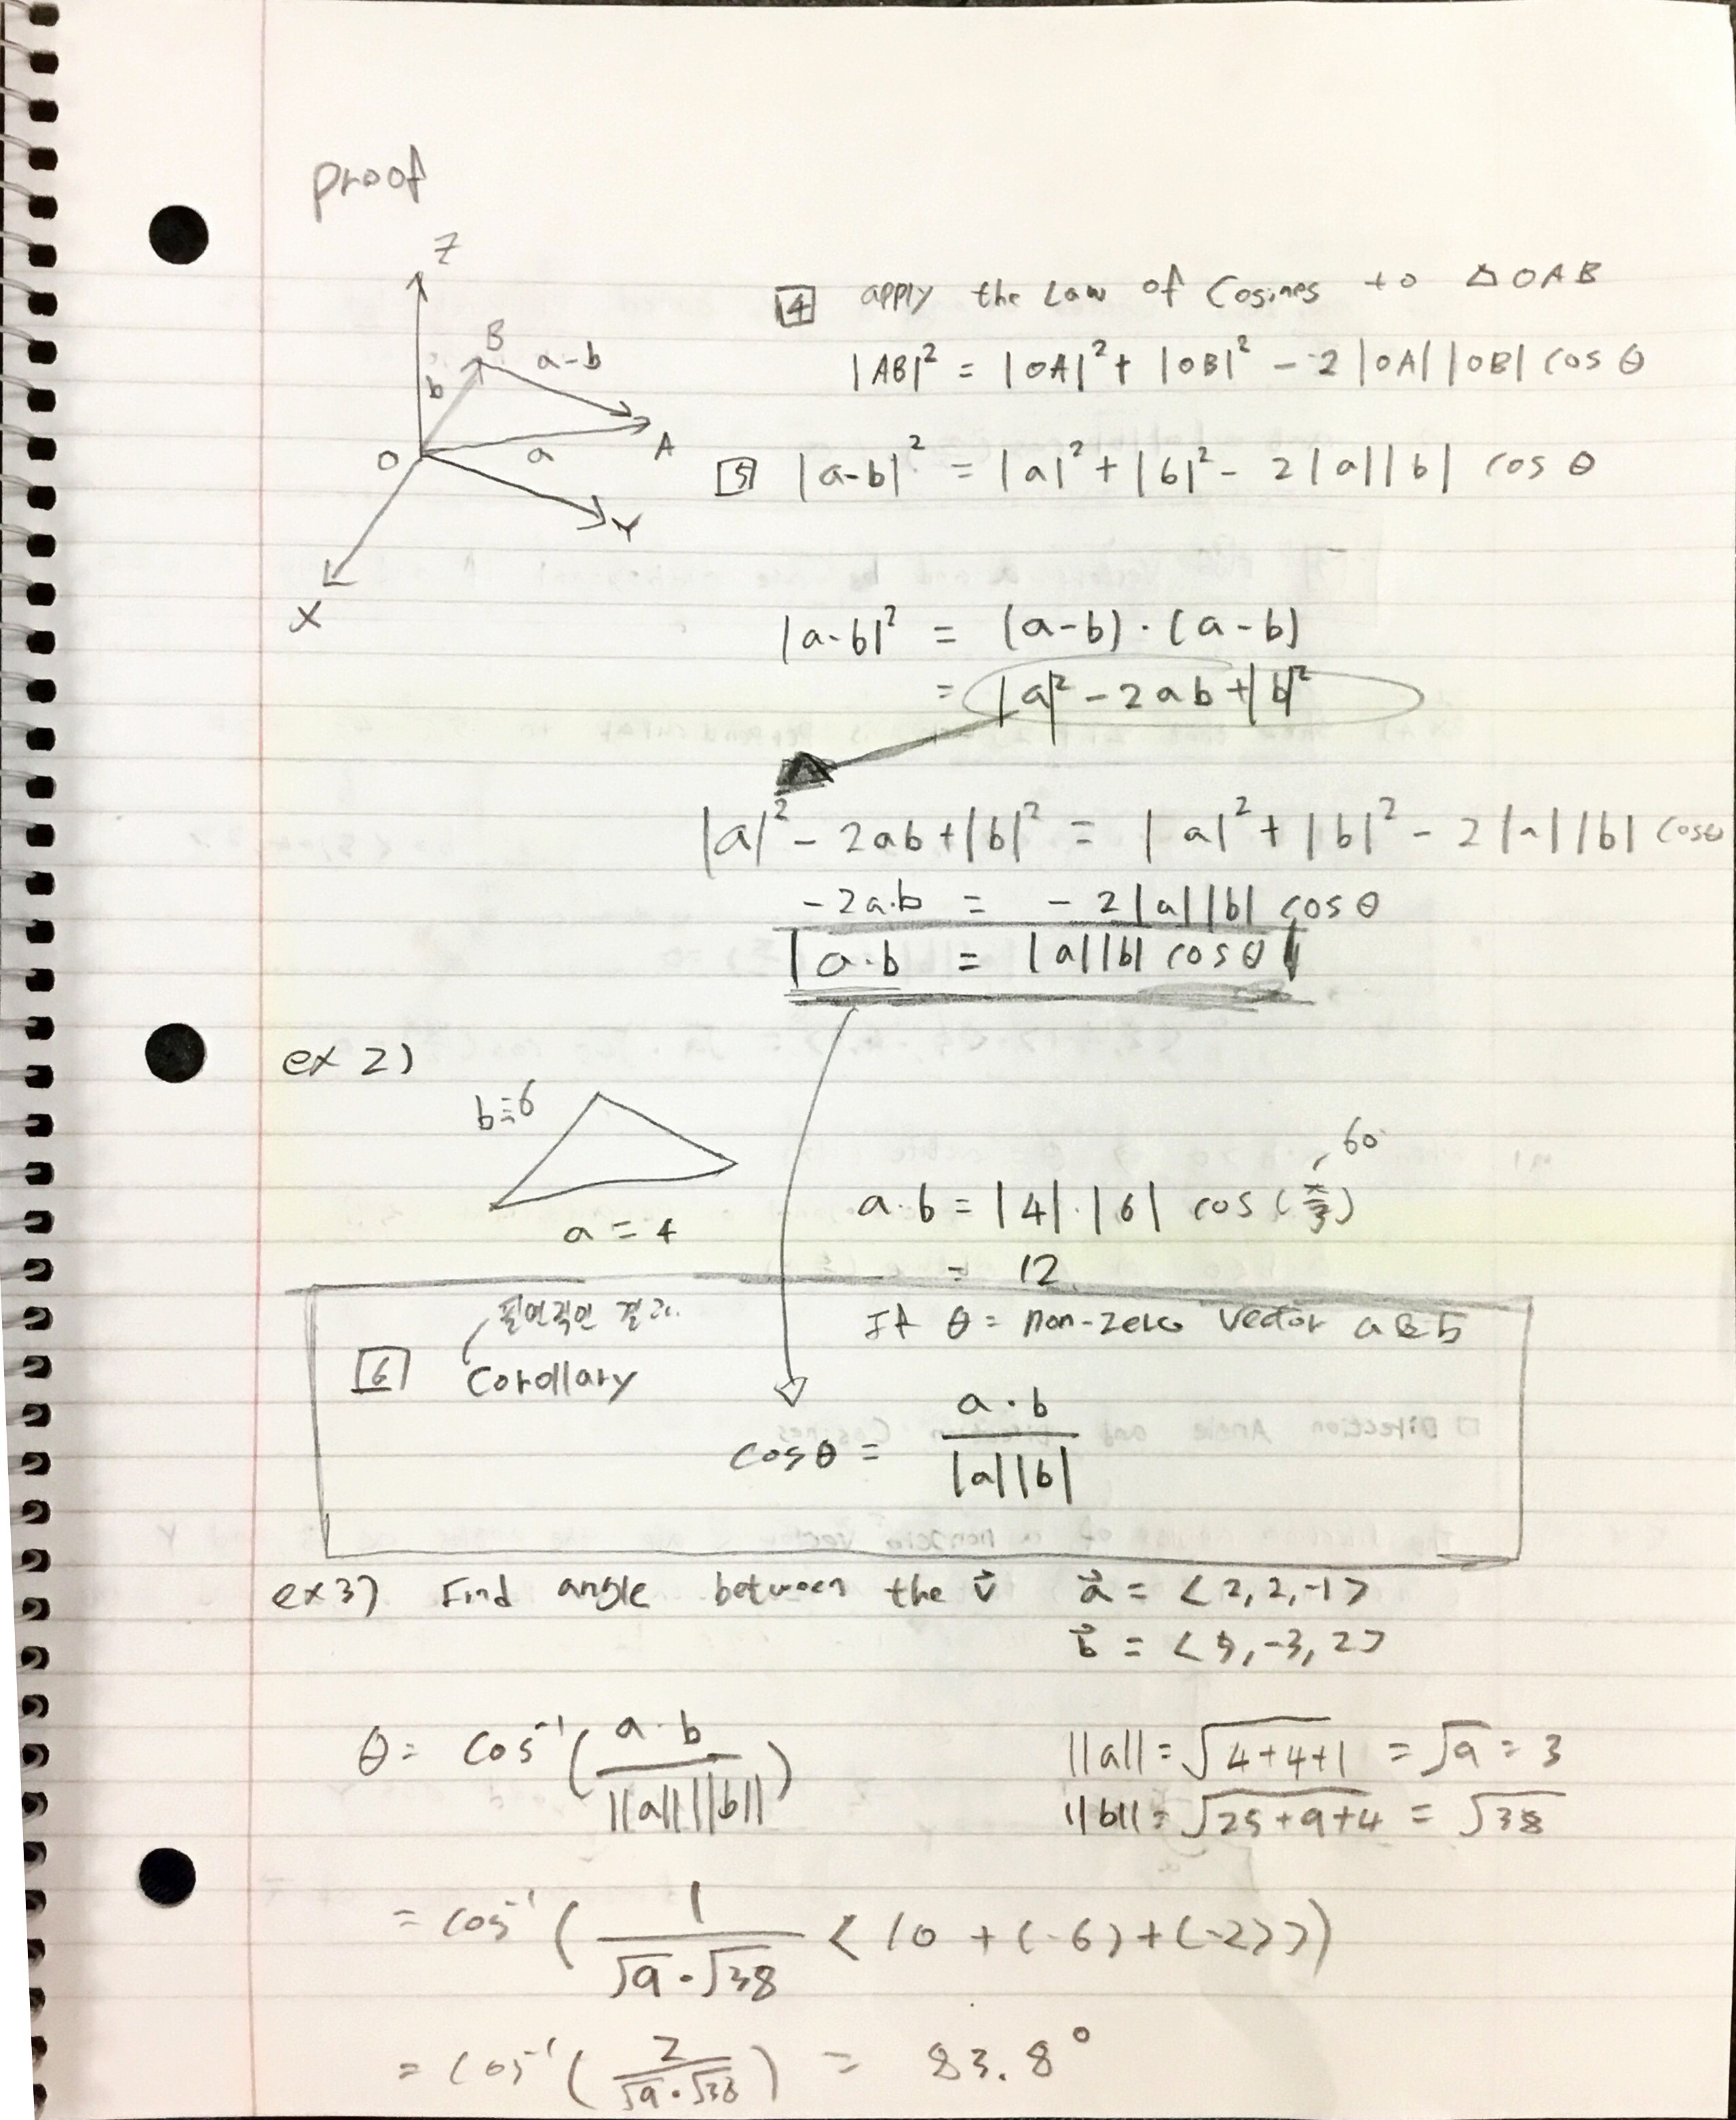 proof
Z
B
a-b
b
O
a
A
Y
X
4 apply the Law of Cosines to △OAB
|AB|² = |OA|² + |OB|² - 2|OA||OB| cos θ
5 |a-b|² = |a|² + |b|² - 2|a||b| cos θ
|a-b|² = (a-b)·(a-b)
= |a|² - 2ab + |b|²
|a|² - 2ab + |b|² = |a|² + |b|² - 2|a||b| cosθ
-2a·b = -2|a||b| cos θ
a·b = |a||b| cos θ
ex 2)
b=6
a = 4
60
a·b = |4|·|6| cos (π/3)
= 12
필연적인 결과
If θ = non-zero vector a & b
6 Corollary
cos θ = a·b / |a||b|
ex 3) Find angle between the v⃗ a⃗ = <2, 2, -1>
b⃗ = <5, -3, 2>
θ = cos⁻¹ (a·b / ||a|| ||b||) ||a|| = √4+4+1 = √9 = 3
||b|| = √25+9+4 = √38
= cos⁻¹ (1 / √9·√38 <10 + (-6) + (-2)>)
= cos⁻¹ (2 / √9·√38) = 83.8°